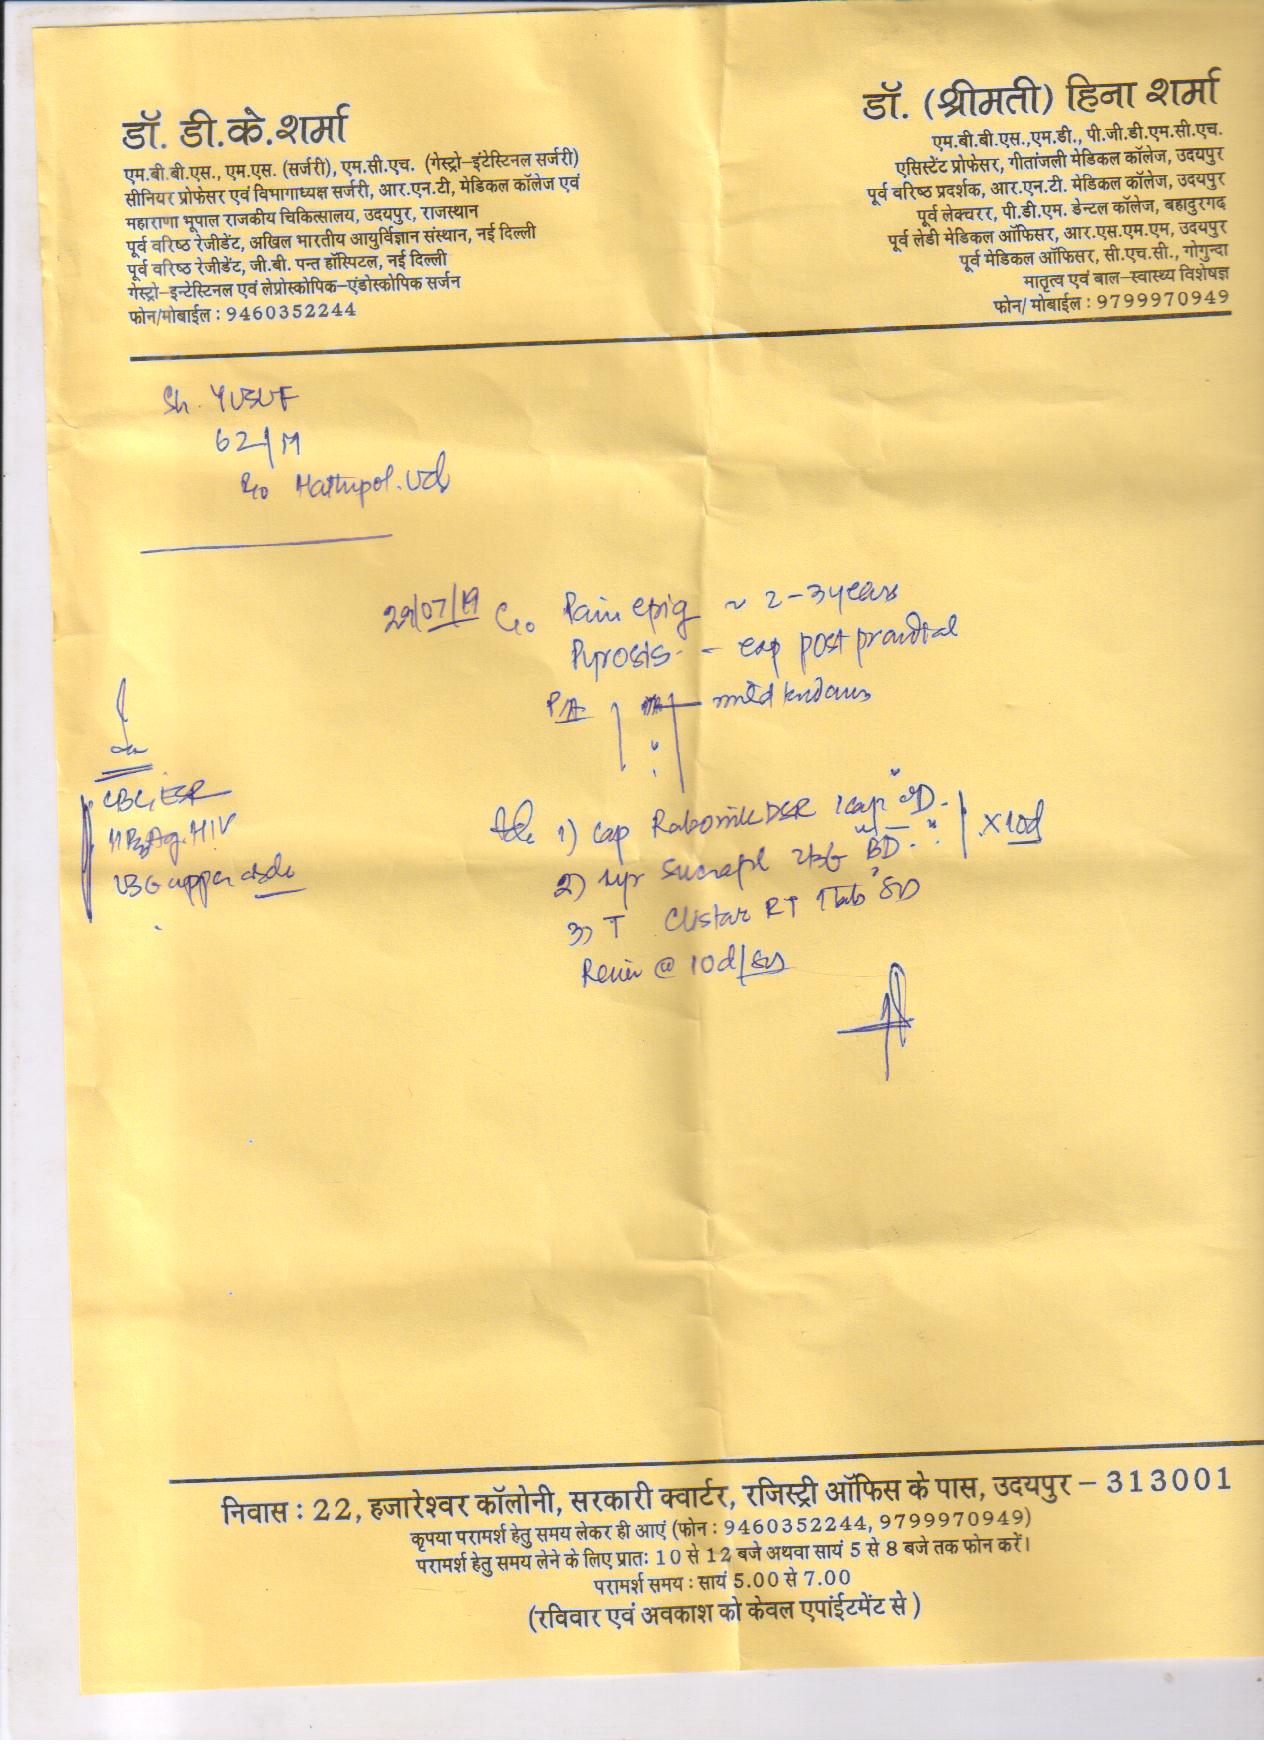 डॉ. डी.के.शर्मा
एम.बी.बी.एस., एम.एस. (सर्जरी), एम.सी.एच. (गेस्ट्रो-इंटेस्टिनल सर्जरी)
सीनियर प्रोफेसर एवं विभागाध्यक्ष सर्जरी, आर.एन.टी, मेडिकल कॉलेज एवं
महाराणा भूपाल राजकीय चिकित्सालय, उदयपुर, राजस्थान
पूर्व वरिष्ठ रेजीडेंट, अखिल भारतीय आयुर्विज्ञान संस्थान, नई दिल्ली
पूर्व वरिष्ठ रेजीडेंट, जी.बी. पन्त हॉस्पिटल, नई दिल्ली
गेस्ट्रो-इन्टेस्टिनल एवं लेप्रोस्कोपिक-एंडोस्कोपिक सर्जन
फोन/मोबाईल : 9460352244
डॉ. (श्रीमती) हिना शर्मा
एम.बी.बी.एस.,एम.डी., पी.जी.डी.एम.सी.एच.
एसिस्टेंट प्रोफेसर, गीतांजली मेडिकल कॉलेज, उदयपुर
पूर्व वरिष्ठ प्रदर्शक, आर.एन.टी. मेडिकल कॉलेज, उदयपुर
पूर्व लेक्चरर, पी.डी.एम. डेन्टल कॉलेज, बहादुरगढ
पूर्व लेडी मेडिकल ऑफिसर, आर.एस.एम.एम, उदयपुर
पूर्व मेडिकल ऑफिसर, सी.एच.सी., गोगुन्दा
मातृत्व एवं बाल-स्वास्थ्य विशेषज्ञ
फोन/ मोबाईल : 9799970949
Sh. YUSUF
62/M
R/o Hathipol. Ud
/07/19 C/o Pain epig ~ 2-3 years
Pyrosis - esp post prandial
P/A mild
CBC, ESR
HBsAg, HIV
USG upper abd
1) Cap DSR 1 cap OD
2) Syr BD × 10d
3) T 1 tab
Review @ 10d/
निवास : 22, हजारेश्वर कॉलोनी, सरकारी क्वार्टर, रजिस्ट्री ऑफिस के पास, उदयपुर - 313001
कृपया परामर्श हेतु समय लेकर ही आएं (फोन : 9460352244, 9799970949)
परामर्श हेतु समय लेने के लिए प्रातः 10 से 12 बजे अथवा सायं 5 से 8 बजे तक फोन करें।
परामर्श समय : सायं 5.00 से 7.00
(रविवार एवं अवकाश को केवल एपांईटमेंट से )